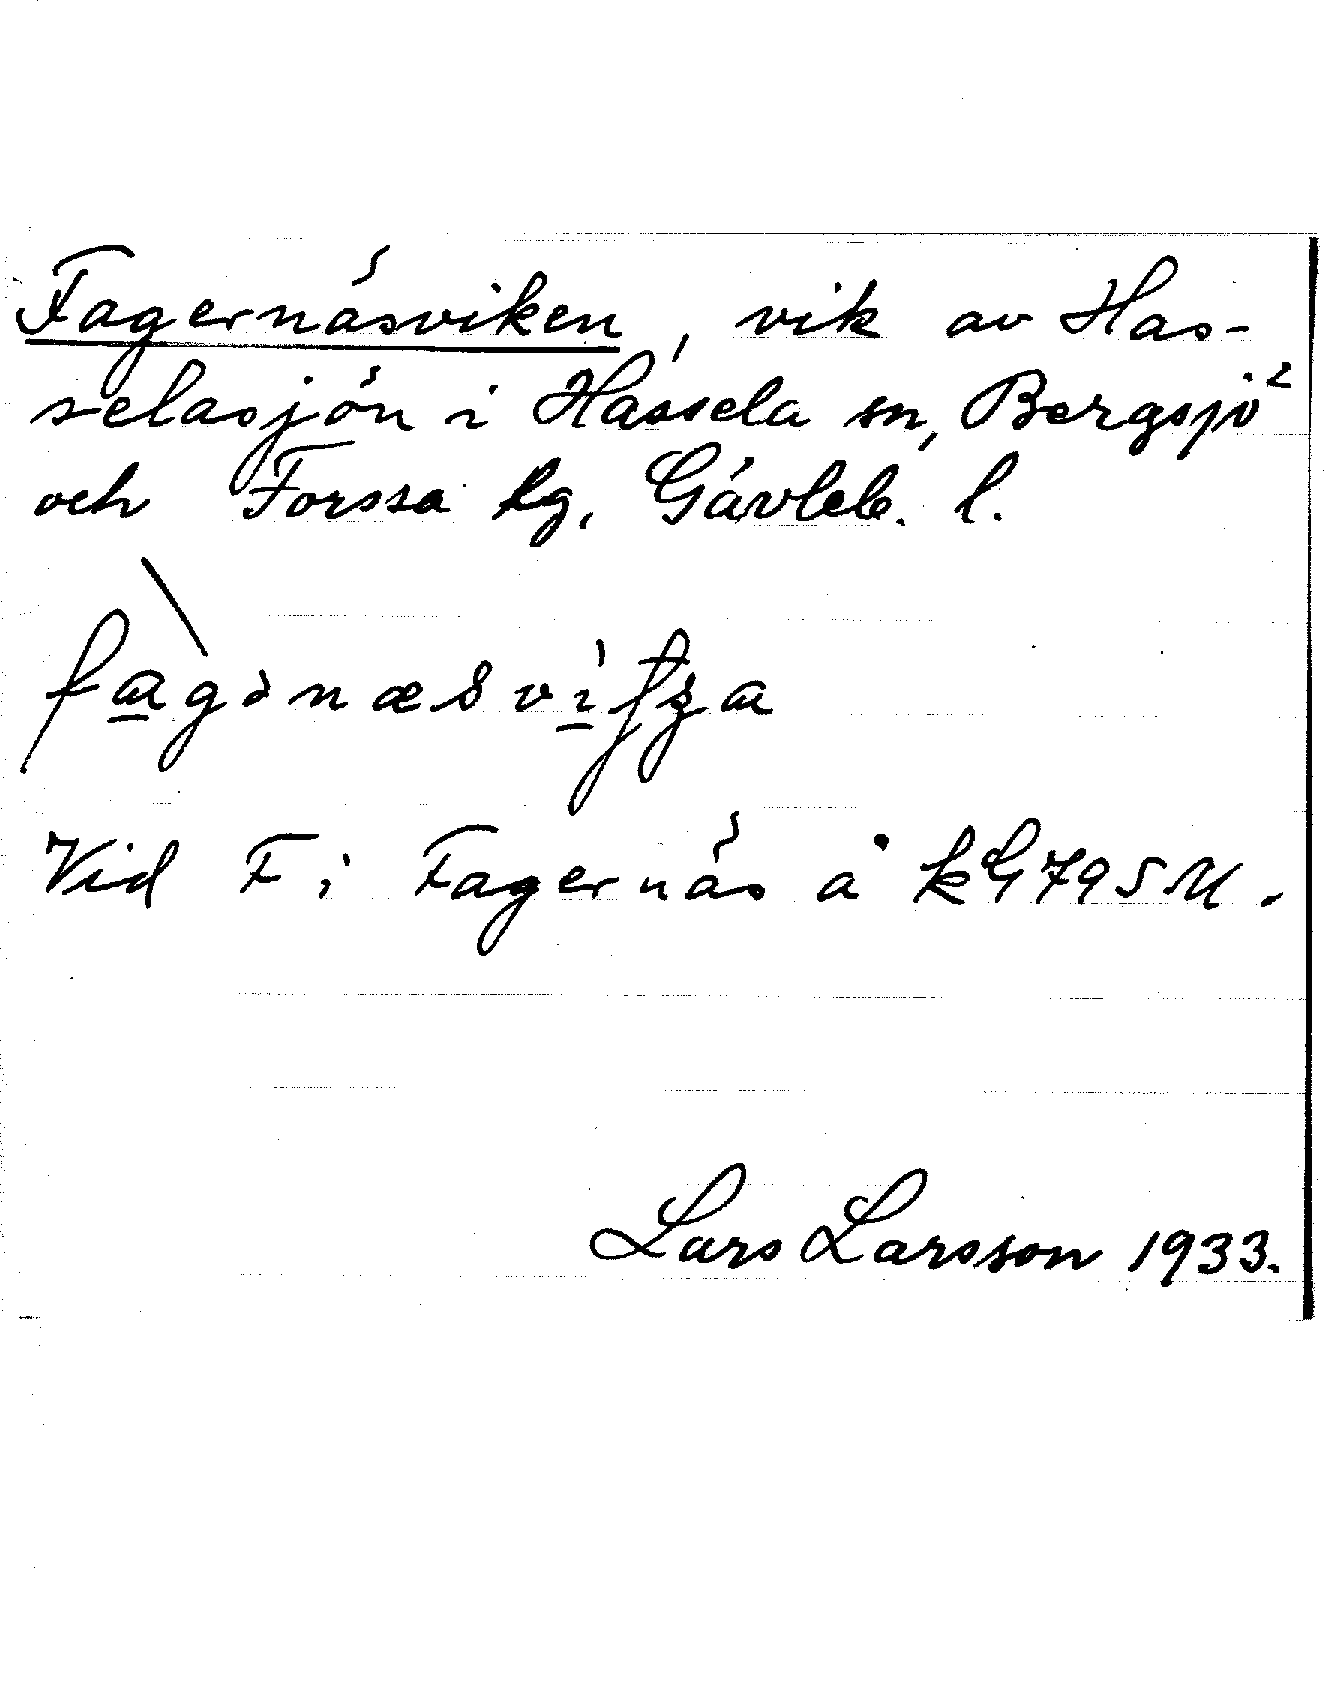 Fagernäsviken, vik av Has-
selasjön i Hassela sn, Bergsjö
och Forssa tg, Gävleb. l.
Vid F i Fagernäs å kG795M.
Lars Larsson 1933.